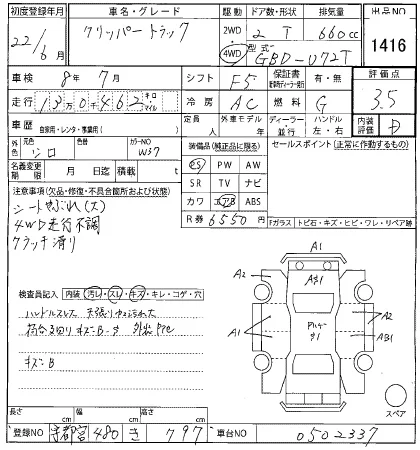 初度登録年月 車名・グレード 駆動 ドア数・形状 排気量 出品NO
22/6月 クリッパートラック 2WD 4WD 2 T 660cc 1416
型式 GBD-U72T
車検 8年7月 シフト F5 保証書 有・無 評価点
走行 13万0千462 キロ マイル 冷房 AC 燃料 G 3.5
車歴 自家用・レンタ・事業用( ) 定員 人 外車モデル 年 ディーラー・並行 ハンドル 左・右 内装評価 D
外色 元色 シロ 色替 カラーNO W37 装備品(純正品に限る) セールスポイント(正常に作動するもの)
名義変更期限 月 日迄 積載 t PS PW AW
注意事項(欠品・修復・不具合箇所および状態) SR TV ナビ
シートやぶれ(大) カワ エアB ABS
4WD走行不調 R券 6550円
クラッチ滑り Fガラス トビ石・キズ・ヒビ・ワレ・リペア跡
検査員記入 内装(汚レ・スレ・キズ・キレ・コゲ・穴)
ハンドルスレ
キズB
A1
A2
A1
A2
AB1
スペア
長さ cm 幅 cm 高さ cm
登録NO 宇都宮 480 き 797 車台NO 0502337